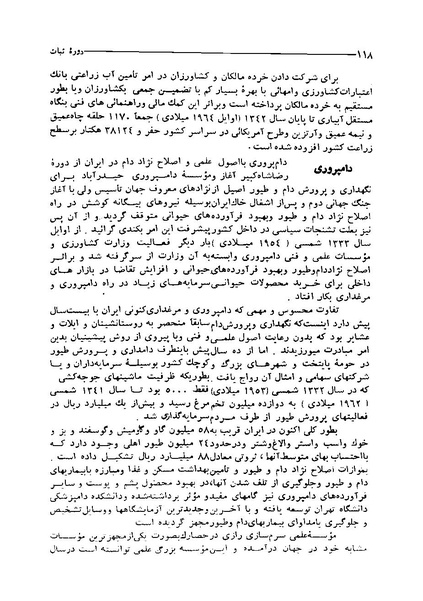 ۱۱۸ دورهٔ ثبات
برای شرکت دادن خرده مالکان و کشاورزان در امر تأمین آب زراعتی بانک
اعتبارات کشاورزی وامهائی با بهرهٔ بسیار کم با تضمین جمعی بکشاورزان وبا بطور
مستقیم به خرده مالکان پرداخته است وبراثر این کمک مالی وراهنمائی های فنی بنگاه
مستقل آبیاری تا پایان سال ۱۳۴۲ (اوایل ۱۹۶۴ میلادی) جمعاً ۱۱۷۰ حلقه چاه‌عمیق
و نیمه عمیق وآرتزین وطرح آمریکائی در سراسر کشور حفر و ۳۸۱۲۴ هکتار برسطح
زراعت کشور افزوده شده است.
دامپروری دام‌پروری بااصول علمی و اصلاح نژاد دام در ایران از دورهٔ
رضاشاه‌کبیر آغاز ومؤسسهٔ دامپروری حیدرآباد برای
نگهداری و پرورش دام و طیور اصیل ازنژادهای معروف جهان تأسیس ولی با آغاز
جنگ جهانی دوم و پس‌از اشغال خاک‌ایران بوسیله نیروهای بیگانه کوشش در راه
اصلاح نژاد دام و طیور وبهبود فرآورده‌های حیوانی متوقف گردید. و از آن پس
نیز بعلت تشنجات سیاسی در داخل کشورپیشرفت این امر بکندی گرائید. از اوایل
سال ۱۳۳۳ شمسی (۱۹۵۴ میلادی) بار دیگر فعالیت وزارت کشاورزی و
مؤسسات علمی و فنی دامپروری وابسته‌به آن وزارت از سرگرفته شد و براثر
اصلاح نژاددام‌وطیور و بهبود فرآورده‌های‌حیوانی و افزایش تقاضا در بازار های
داخلی برای خرید محصولات حیوانی‌سرمایه‌های زیاد در راه دامپروری و
مرغداری بکار افتاد.
تفاوت محسوس و مهمی که دامپروری و مرغداری‌کنونی ایران با بیست‌سال
پیش دارد اینست‌که نگهداری وپرورش‌دام سابقاً منحصر به روستانشینان و ایلات و
عشایر بود که بدون رعایت اصول‌علمی‌و فنی وبا پیروی از روش پیشینیان بدین
امر مبادرت میورزیدند. اما از ده سال پیش باینطرف دامداری و پرورش طیور
در حومهٔ پایتخت و شهرهای بزرگ و کوچک کشور بوسیلهٔ سرمایه‌داران و یا
شرکتهای سهامی و امثال آن رواج یافت. بطوریکه ظرفیت ماشینهای جوجه‌کشی
که در سال ۱۳۳۲ شمسی (۱۹۵۳ میلادی) فقط ۵۰۰۰ بود تا سال ۱۳۴۱ شمسی
(۱۹۶۲ میلادی) به دوازده میلیون تخم‌مرغ رسید و بیش‌از یک میلیارد ریال در
فعالیتهای پرورش طیور از طرف مردم سرمایه‌گذاری شد.
بطور کلی اکنون در ایران قریب به ۵۸ میلیون گاو وگاومیش وگوسفند و بز و
خوک واسب واستر والاغ‌وشتر ودرحدود ۲۴ میلیون طیور اهلی وجود دارد که
بااحتساب بهای متوسط‌آنها، ثروتی معادل ۸۸ میلیارد ریال تشکیل داده است.
بموازات اصلاح نژاد دام و طیور و تأمین‌بهداشت مسکن و غذا ومبارزه بابیماریهای
دام و طیور وجلوگیری از تلف شدن آنها، در بهبود محصول پشم و پوست و سایر
فرآورده‌های دامپروری نیز گامهای مفیدو مؤثر برداشته‌شده ودانشکده دامپزشکی
دانشگاه تهران توسعه یافته و با آخرین‌وجدیدترین آزمایشگاهها ووسایل‌تشخیص
و جلوگیری یامداوای بیماریهای‌دام وطیورمجهز گردیده است
مؤسسهٔ علمی سرم‌سازی رازی درحصارک‌بصورت یکی‌ازمجهزترین مؤسسات
مشابه خود در جهان درآمده و این‌مؤسسه بزرگ علمی توانسته است درسال